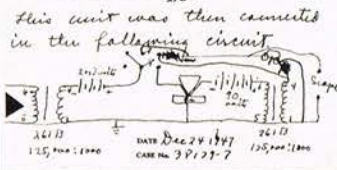 This unit was then connected
in the following circuit
90
volts
261 B
125,000:1000
DATE Dec 24 1947
CASE No. 38139-7
261 B
125,000:1000